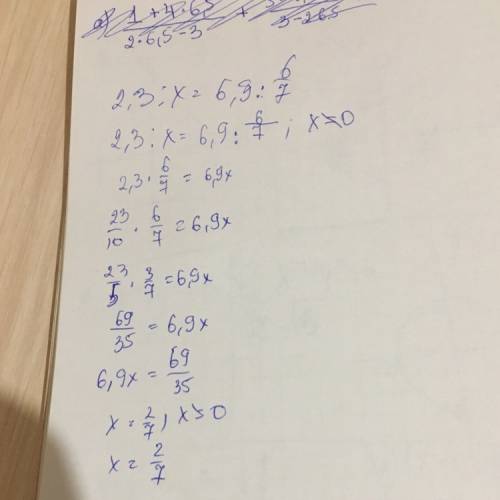 2,3 : x = 6,9 : 6/7
2,3 : x = 6,9 : 6/7 ; x ≠ 0
2,3 · 6/7 = 6,9x
23/10 · 6/7 = 6,9x
23/5 · 3/7 = 6,9x
69/35 = 6,9x
6,9x = 69/35
x = 2/7 , x ≠ 0
x = 2/7